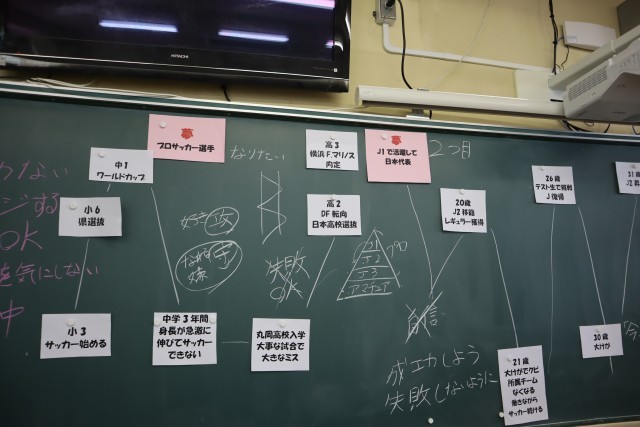 HITACHI
夢
プロサッカー選手
なりたい
中1
ワールドカップ
小6
県選抜
小3
サッカー始める
中学3年間
身長が急激に
伸びてサッカー
できない
丸岡高校入学
大事な試合で
大きなミス
高3
横浜F.マリノス
内定
高2
DF転向
日本高校選抜
失敗
OK
J1
J2
J3
アマチュア
プロ
夢
J1で活躍して
日本代表
2つ目
20歳
J2移籍
レギュラー獲得
自信
成功しよう
失敗しないように
21歳
大けがでクビ
所属チーム
なくなる
働きながら
サッカー続ける
26歳
テスト生で戦力
J復帰
30歳
大けが
31歳
ジする
OK
気にしない
中